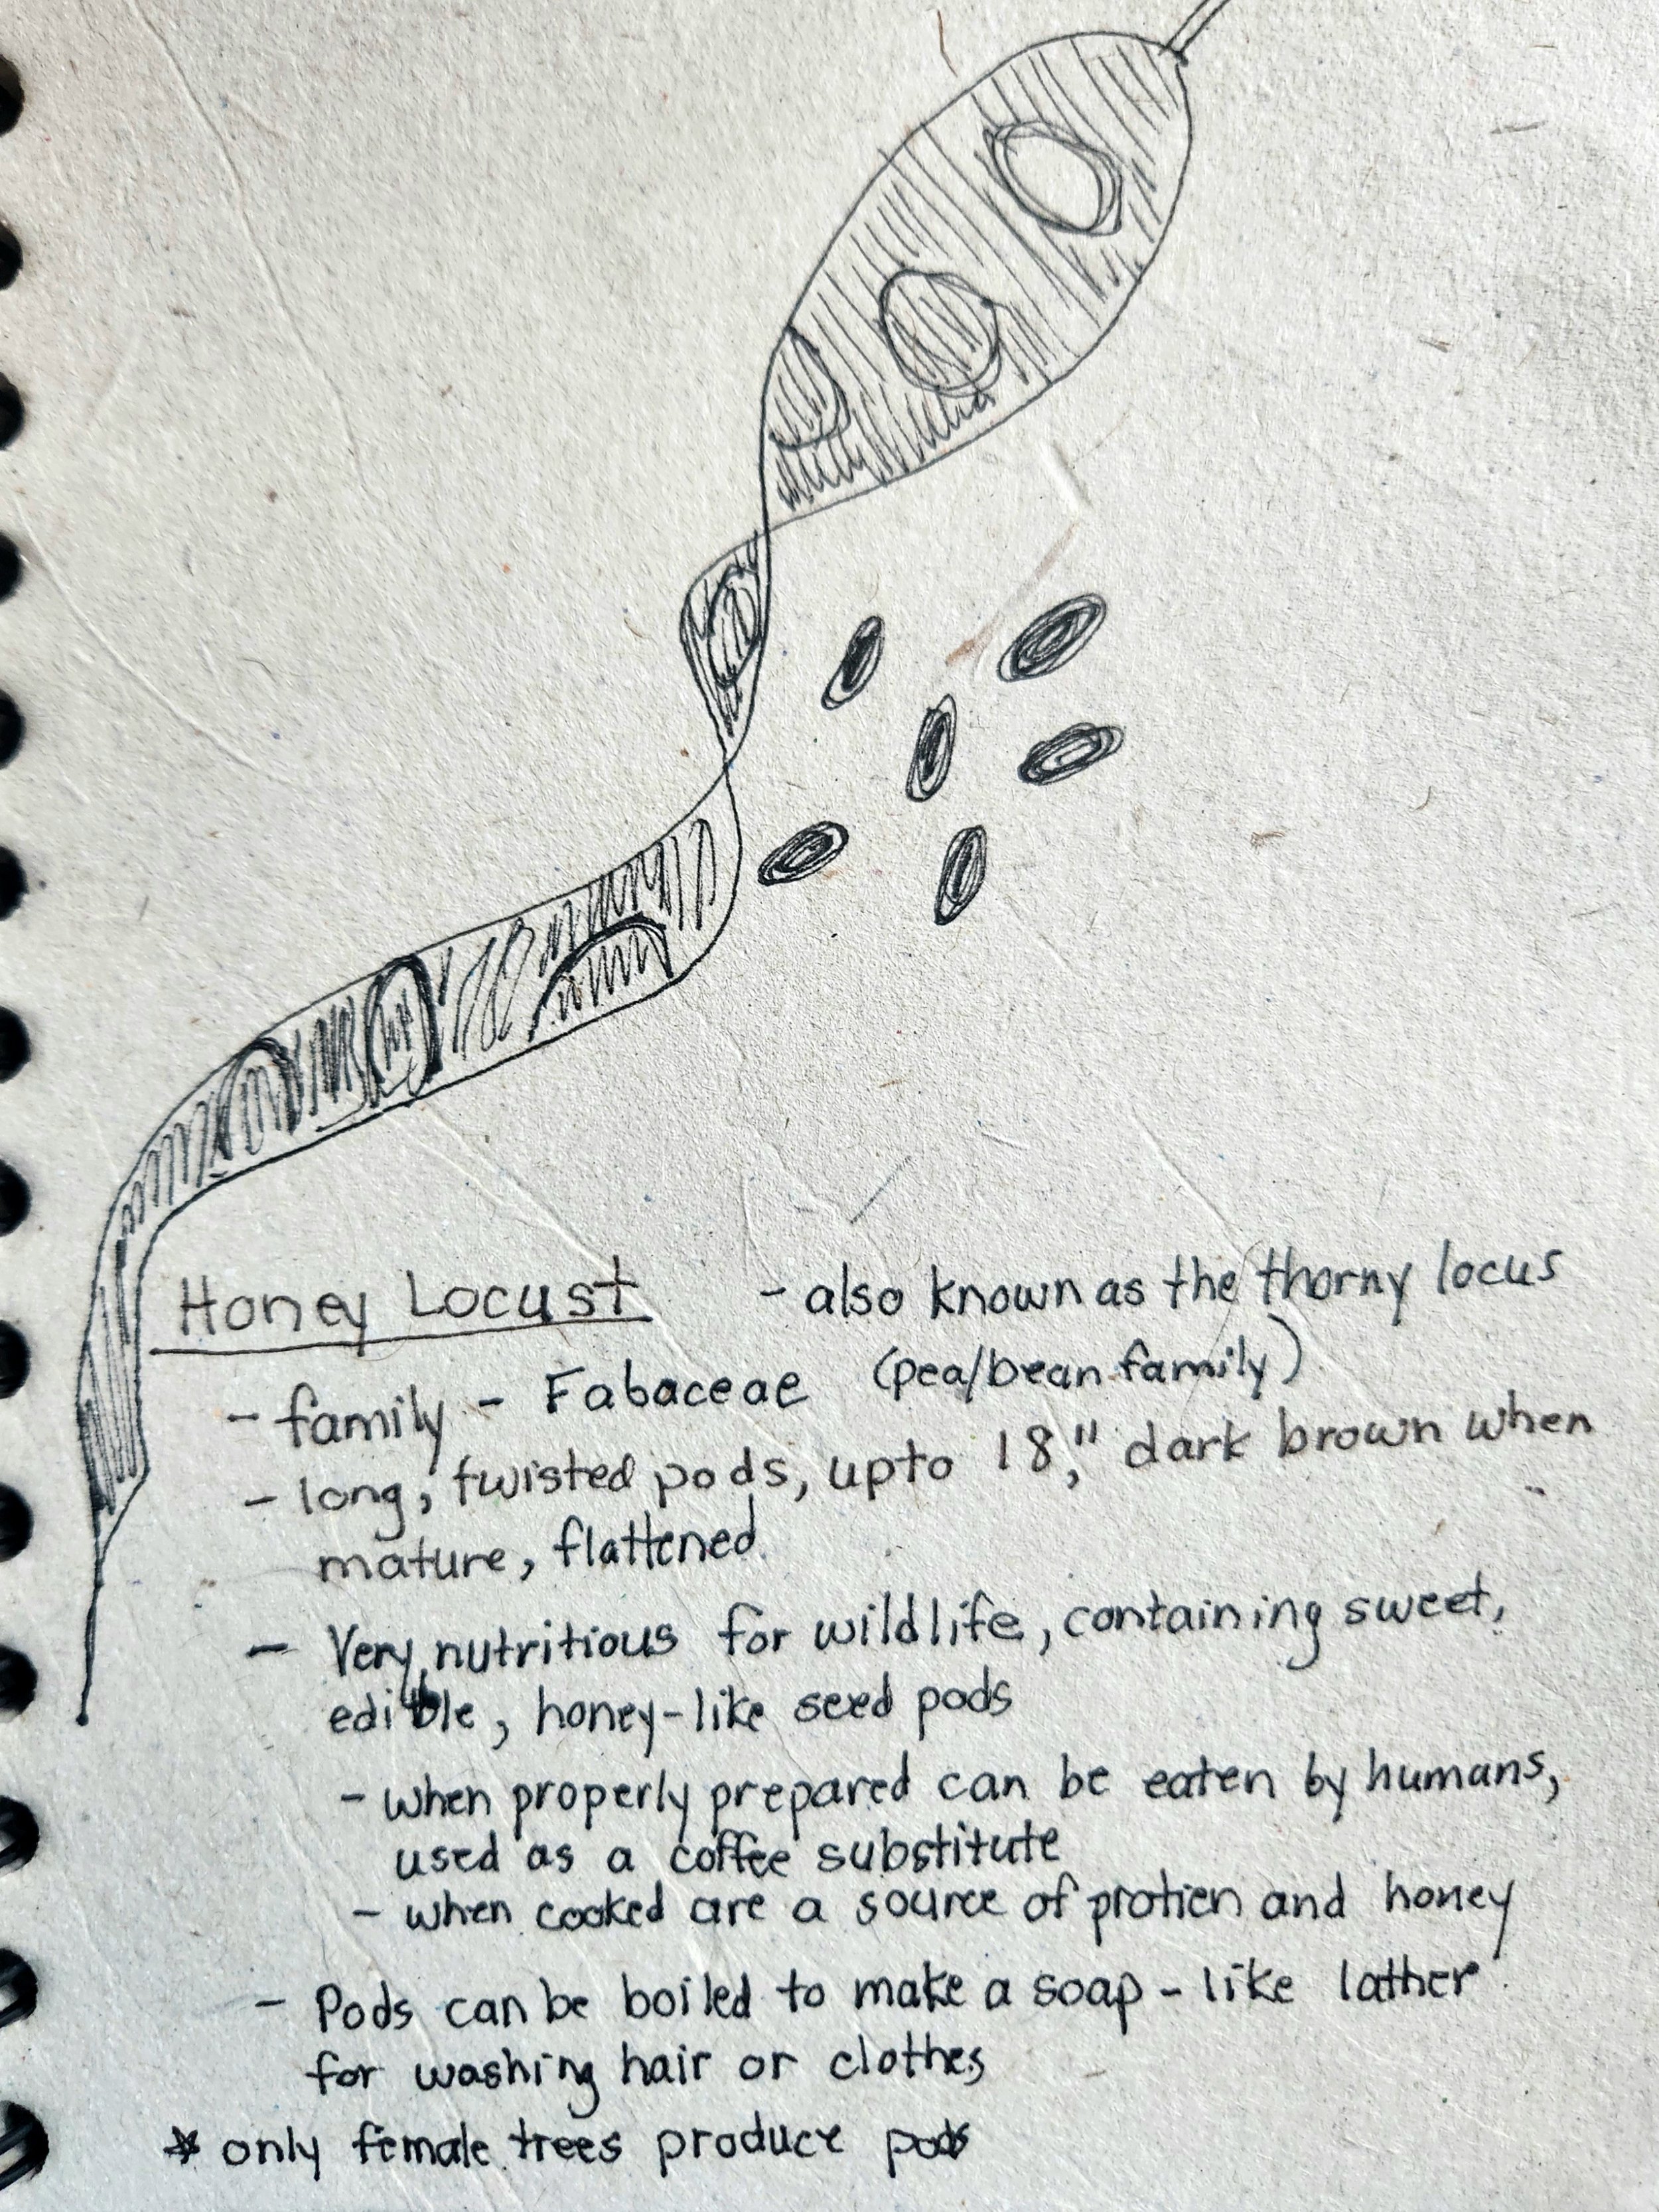 Honey Locust - also known as the thorny locus
- family - Fabaceae (pea/bean family)
- long, twisted pods, upto 18," dark brown when
mature, flattened
- Very nutritious for wildlife, containing sweet,
edible, honey-like seed pods
- when properly prepared can be eaten by humans,
used as a coffee substitute
- when cooked are a source of protien and honey
- Pods can be boiled to make a soap-like lather
for washing hair or clothes
* only female trees produce pods